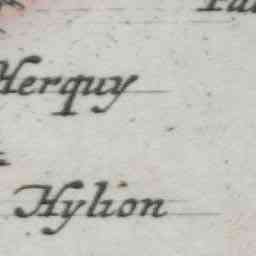 Herquy
Hylion